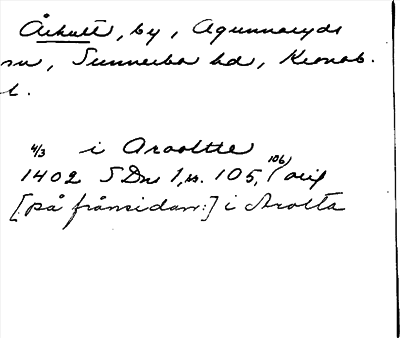 Århult, by, Agunnaryds
sn, Sunnerbo hd, Kronob.
l.
4/3 i Arooltte
1402 SDns 1, s. 105, (106) orig
[på frånsidan:] i Arolta